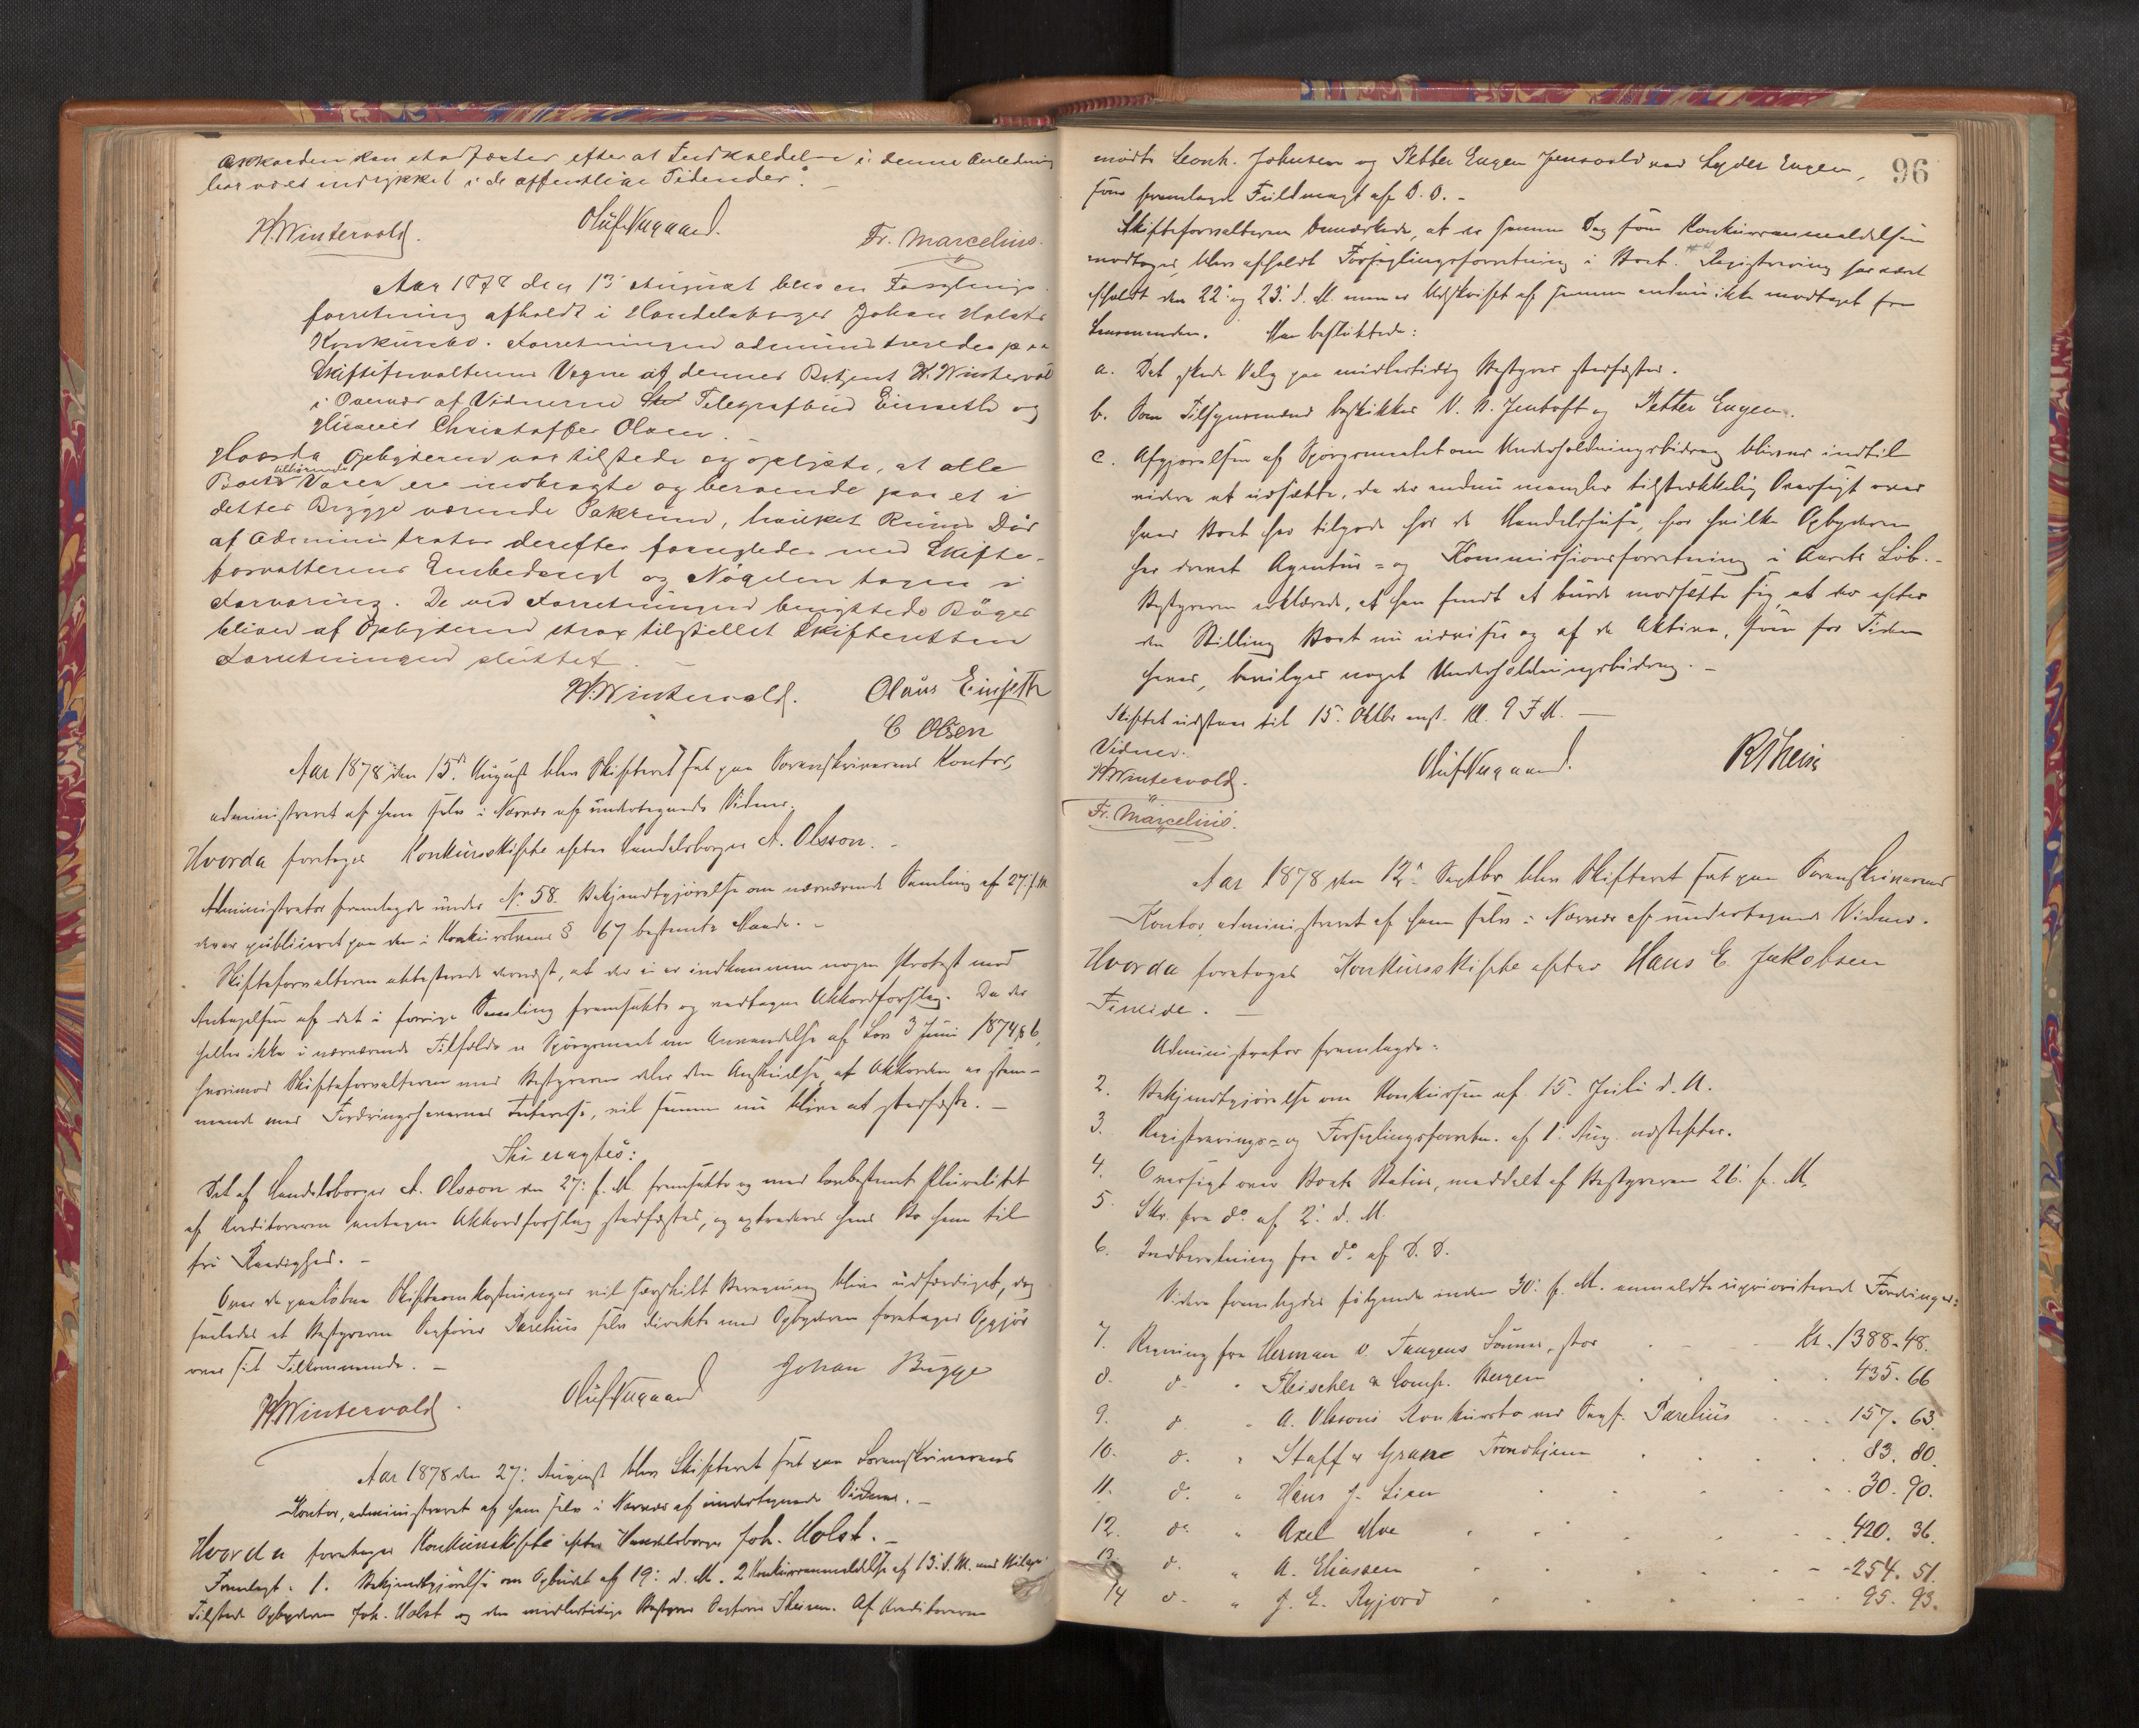 Akkorden kan stadfæstes efter at Indkaldelse i denne Anledning
har været indrykket i de offentlige Tidender." —
H. Wintervold. Oluf Aagaard. Fr. Marcelius.
Aar 1878 den 13 August blev en Forseglings
forretning afholdt i Handelsborger Johan Holsts
Konkursbo. Forretningen administreredes paa
Skifteforvalterens Vegne af dennes Betjent H. Wintervold
i Overvær af Vidnerne Telegrafbud Einseth og
Christoffer Olsen.
Hvorda Opbyderen var tilstede og oplyste, at alle
Boets tilhørende Varer ere indbragte og beroende paa et i
dettes Brygge værende Pakrum, hvilket Rums Dør
af Administrator derefter forsegledes med Skifte-
forvalterens Embedssegl og Nøglen tagen i
Forvaring. De ved Forretningen benyttede Bøger
bliver af Opbyderen strax tilstillet Skifteretten
Forretningen sluttet. —
H. Wintervold. Olaus Einseth
C Olsen
Aar 1878 den 15de August blev Skifteret sat paa Sorenskriverens Kontor,
administreret af ham selv i Nærvær af undertegnede Vidner.
Hvorda foretoges Konkursskifte efter Handelsborger A. Olsson. —
Administrator fremlagde under No 58 Bekjendtgjørelse om nærværende Samling af 27. f. M.
der er publiceret paa den i Konkurslovens § 67 bestemte Maade. —
Skifteforvalteren attesterede dernæst, at der ei er indkommen nogen Protest mod
Antagelsen af det i forrige Samling fremsatte og vedtagne Akkordforslag. Da der
heller ikke i nærværende Tilfælde er Spørgsmaal om Anvendelse af Lov 3 Juni 1874 § 6,
hvorimod Skifteforvalteren med Bestyreren deler den Anskuelse, at Akkorden er stem-
mende med Fordringshavernes Interesse, vil samme nu blive at stadfæste. —
Thi eragtes:
Det af Handelsborger A. Olsson den 27. f. M fremsatte og med lovbestemt Pluralitet
af Kreditorerne antagne Akkordforslag stadfæstes, og extraderes hans Bo ham til
fri Raadighed. —
Over de paaløbne Skifteomkostninger vil særskilt Beregning blive udfærdiget, dog
saaledes at Bestyreren Sagfører Parelius selv direkte med Opbyderen foretager Opgjør
over sit Tilkommende. —
H. Wintervold. Oluf Aagaard Johan Bugge
Aar 1878 den 27. August blev Skifteret sat paa Sorenskriverens
Kontor, administreret af ham selv i Nærvær af undertegnede Vidner. —
Hvorda foretoges Konkursskifte efter Handelsborger Joh. Holst. —
Fremlagt: 1. Bekjendtgjørelse om Opbudet af 19. d. M. 2 Konkursanmeldelse af 13. d. M. med Bilage.
Tilstede Opbyderen Joh. Holst og den midlertidige Bestyrer Sagfører Theisen. Af Kreditorerne
96
mødte Leonh. Johnsen og Petter Engen, Jenvold ved Lyder Engen,
som fremlagde Fuldmagt af D. D. —
Skifteforvalteren bemærkede, at der samme Dag som Konkursanmeldelsen
modtoges, blev afholdt Forseglingsforretning i Boet. Registrering har været
afholdt den 22. og 23. d. M. men er Udskrift af samme endnu ikke modtaget fra
Lensmanden. Man besluttede:
a. Det skede Valg paa midlertidig Bestyrer stadfæstes.
b. Som Tilsynsmænd beskikkes V. B. Jentoft og Petter Engen.
c. Afgjørelsen af Spørgsmaalet om Underholdningsbidrag bliver indtil
videre at udsætte, da der endnu mangler tilstrækkelig Oversigt over
hvad Boet har tilgode hos de Handelshuse, for hvilke Opbyderen
har drevet Agentur- og Kommissionsforretning i Aarets Løb. —
Bestyreren erklærede, at han fandt at burde modsætte sig, at der efter
den Stilling Boet nu udviser og af de Aktiva, som for Tiden
haves, bevilges noget Underholdningsbidrag. —
Skiftet udstaar til 15. Oktbr. anst. Kl. 9 F M. —
Vidner:
H. Wintervold. Oluf Aagaard. R Theis
Fr. Marcelius.
Aar 1878 den 12. Septbr. blev Skifteret sat paa Sorenskriverens
Kontor administreret af ham selv i Nærvær af undertegnede Vidner.
Hvorda foretoges Konkursskifte efter Hans E. Jakobsen
Fineide. —
Administrator fremlagde:
2. Bekjendtgjørelse om Konkursen af 15. Juli d. A.
3. Registrerings- og Forseglingsforretn. af 1. Aug. næstefter.
4. Oversigt over Boets Status, meddelt af Bestyreren 26. f. M.
5. Skr. fra do. af 2. d. M.
6. Indberetning fra do. af D. D.
Videre fremlagdes følgende inden 30. f. M. anmeldte uprioriterede Fordringer:
7. Regning fra Herman v. Tangens Sønner, stor Kr. 1388. 48.
8. d. " Fleischer & Comp. Bergen 435. 66
9. d. " A. Olssons Konkursbo ved Sagf. Parelius 157. 63
10. d. " Staff & Grane Trondhjem 83. 80.
11. d. " Hans J. Lien 30. 90.
12. d. " Axel Moe 420. 36.
13. d. " A. Eliassen 254. 51.
14 d. " J. E. Ryjord 95. 93.